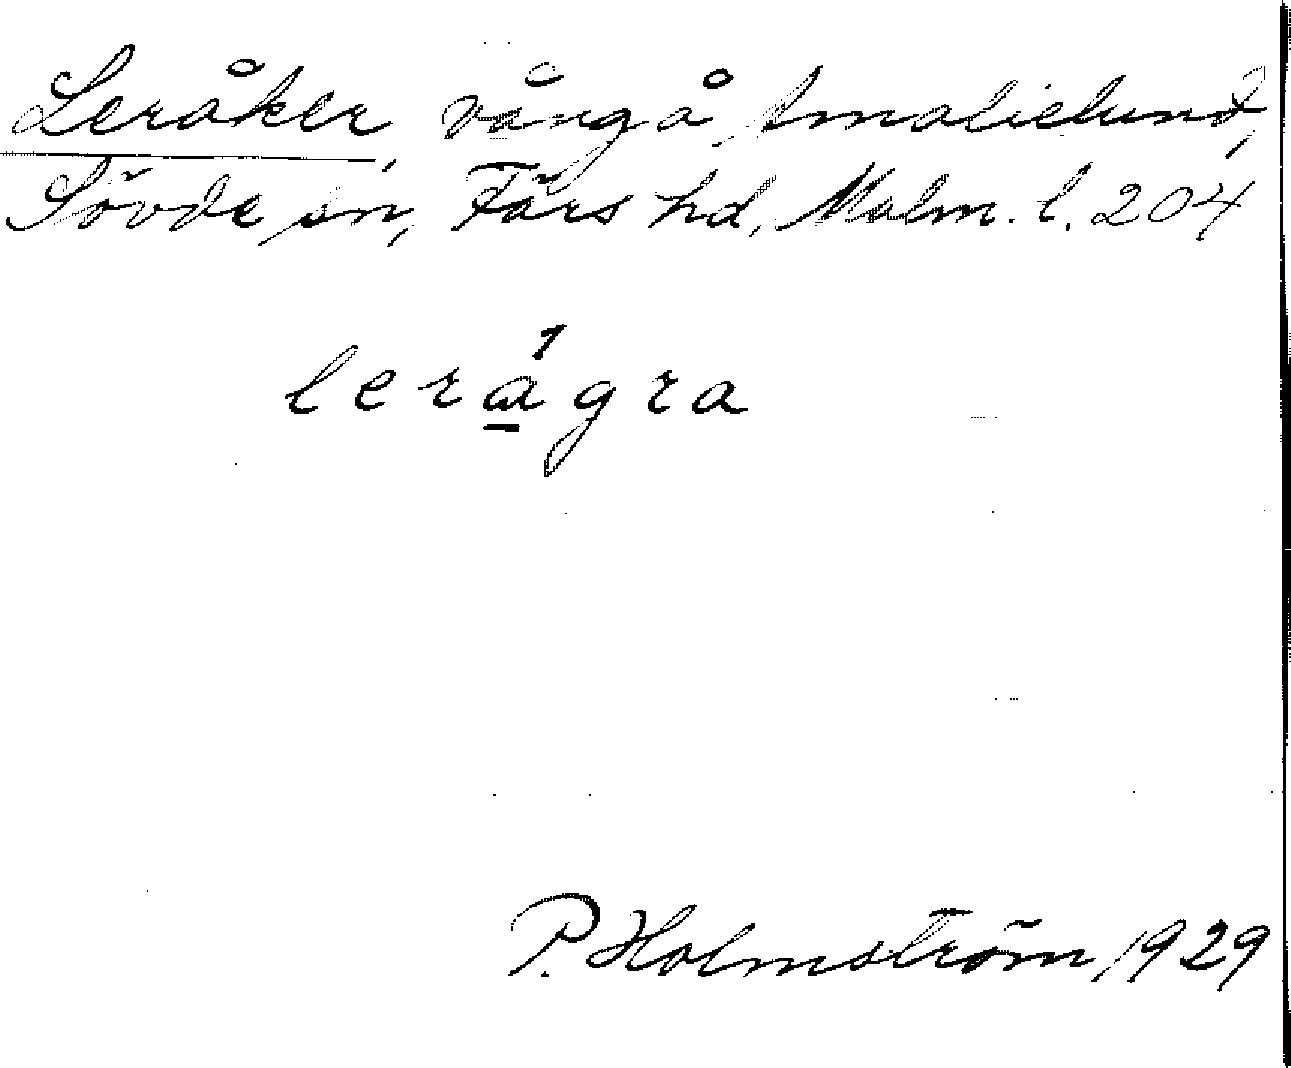 Leråker, vång å Amalielund,
Sövde sn, Färs hd, Malm. l. 204
lerágra
P. Holmström 1929